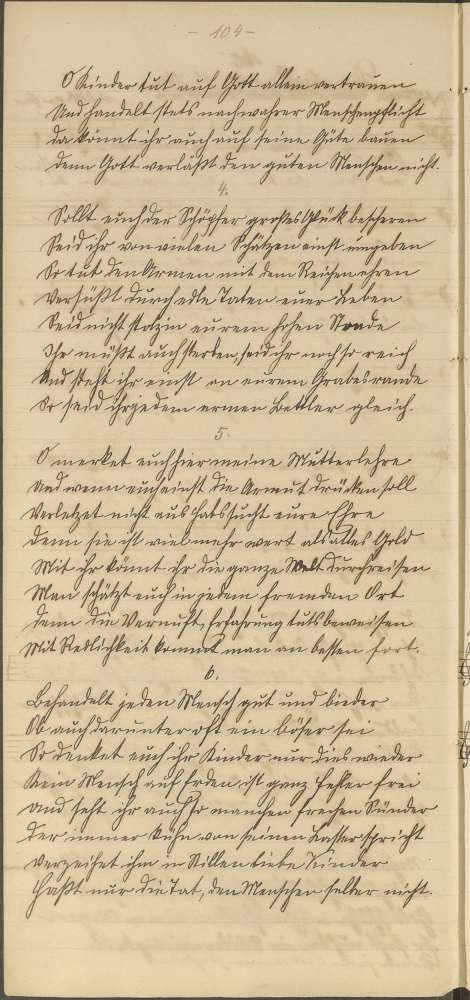 - 104 -
O Kinder tut auf Gott allein vertrauen
Und handelt stets nach wahrer Menschenpflicht
da könnt ihr auch auf seine Güte bauen
denn Gott verläßt den guten Menschen nicht.
4.
Sollt euch der Schöpfer großes Glük bescheren
Seid ihr von vielen Schätzen einst umgeben
So tut den Armen mit dem Reichen ehren
Versüßt durch edle Taten euer Leben
Seid nicht stolz in eurem hohen Stande
Ihr müßt auch sterben, seid ihr noch so reich
Und steht ihr einst an eurem Grabesrande
So seid ihr jedem armen Bettler gleich.
5.
O merket euch hier meine Mutterlehre
Und wenn euch einst die Armut drücken soll
Verletzet nicht aus Habsucht eure Ehre
denn sie ist viel mehr wert als alles Gold
Mit ihr könnt ihr die ganze Welt durchreisen
Man schätzt euch in jedem fremden Ort
denn die Vernunft, Erfahrung tuts beweisen
Mit Redlichkeit kommt man am besten fort.
6.
Behandelt jeden Mensch gut und bieder
Ob auch darunter oft ein böser sei
So denket euch ihr Kinder nur dies wieder
Kein Mensch auf Erden ist ganz Fehler frei
Und seht ihr auch so manchen frechen Sünder
der immer kühn von seinen Laster spricht
Verzeihet ihm in Stillen liebe Kinder
Haßt nur die Tat, den Menschen selber nicht.